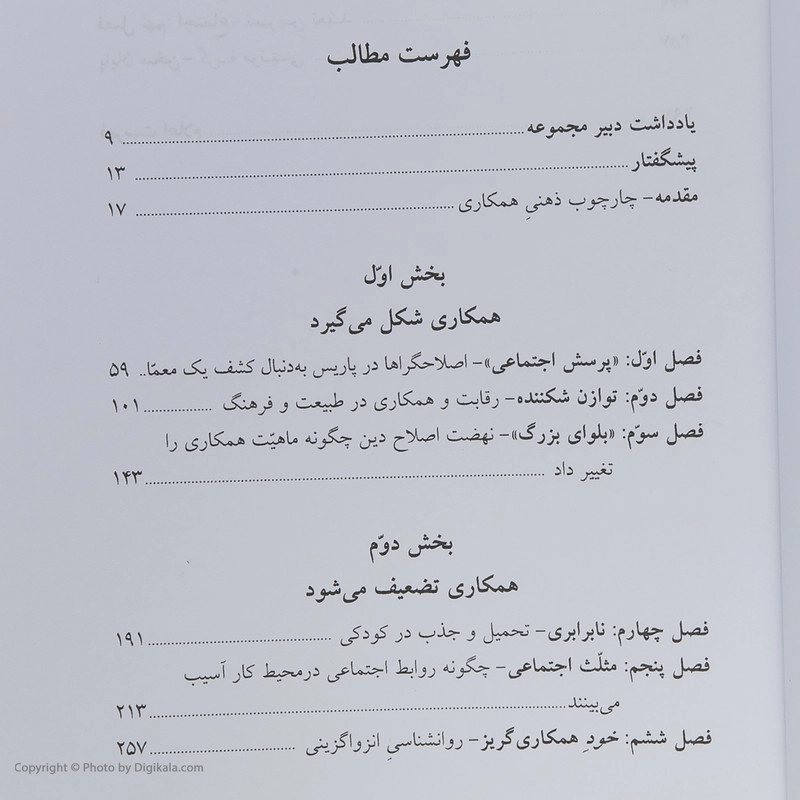 فهرست مطالب
یادداشت دبیر مجموعه ........ ۹
پیشگفتار ........ ۱۳
مقدمه – چارچوب ذهنیِ همکاری ........ ۱۷
بخش اوّل
همکاری شکل می‌گیرد
فصل اوّل: «پرسش اجتماعی» – اصلاحگراها در پاریس به‌دنبال کشف یک معمّا.. ۵۹
فصل دوّم: توازن شکننده – رقابت و همکاری در طبیعت و فرهنگ ........ ۱۰۱
فصل سوّم: «بلوای بزرگ» – نهضت اصلاح دین چگونه ماهیّت همکاری را
تغییر داد ........ ۱۴۳
بخش دوّم
همکاری تضعیف می‌شود
فصل چهارم: نابرابری – تحمیل و جذب در کودکی ........ ۱۹۱
فصل پنجم: مثلّث اجتماعی – چگونه روابط اجتماعی درمحیط کار آسیب
می‌بینند ........ ۲۱۳
فصل ششم: خودِ همکاری‌گریز – روانشناسیِ انزواگزینی ........ ۲۵۷
Copyright © Photo by Digikala.com